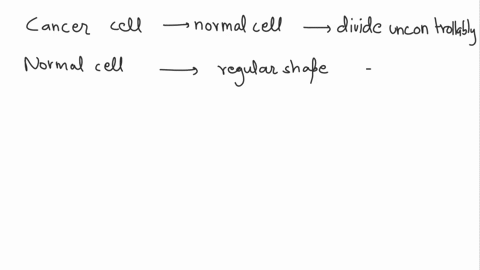 Cancer cell → normal cell → divide uncontrollably
Normal cell → regular shape -